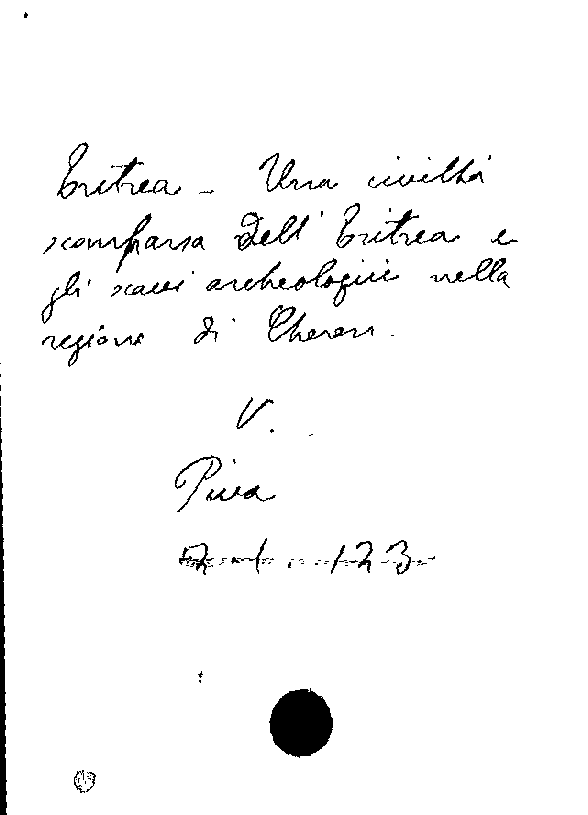 Eritrea - Una civiltà
scomparsa dell'Eritrea e
gli scavi archeologici nella
regione di Cheren.
V.
Piva
123